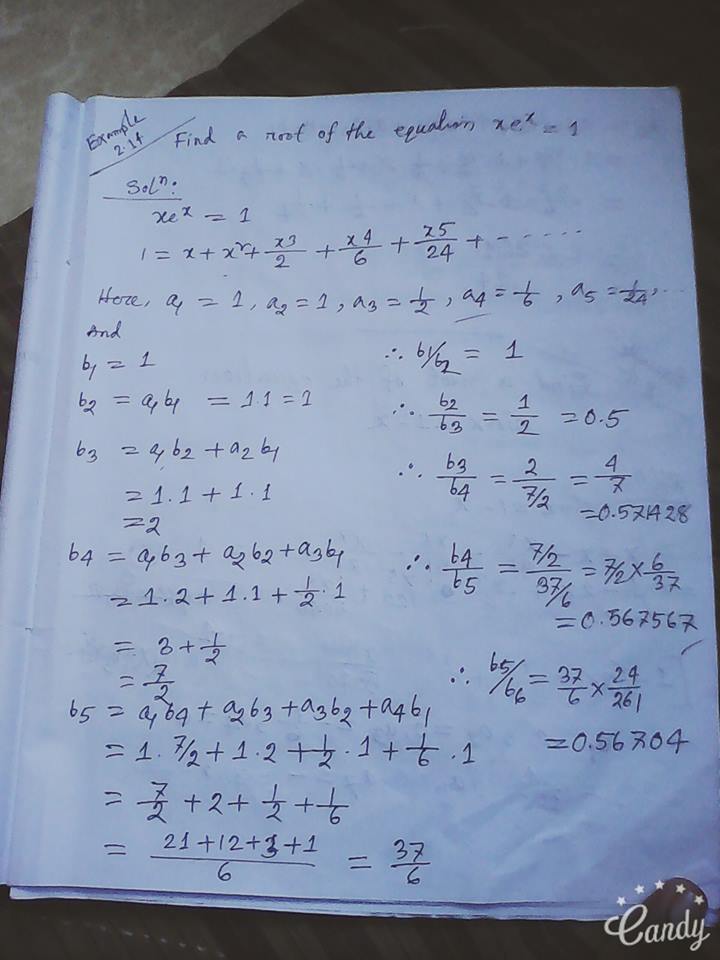 Example 2.14
Find a root of the equation xe^x = 1
Sol^n:
xe^x = 1
1 = x + x² + x3/2 + x4/6 + x5/24 + ------
Here, a1 = 1, a2 = 1, a3 = 1/2, a4 = 1/6, a5 = 1/24, ...
And
b1 = 1
b2 = a1b1 = 1.1 = 1
b3 = a1b2 + a2b1
= 1.1 + 1.1
= 2
b4 = a1b3 + a2b2 + a3b1
= 1.2 + 1.1 + 1/2 . 1
= 3 + 1/2
= 7/2
b5 = a1b4 + a2b3 + a3b2 + a4b1
= 1.7/2 + 1.2 + 1/2 . 1 + 1/6 . 1
= 7/2 + 2 + 1/2 + 1/6
= 21+12+3+1/6 = 37/6
∴ b1/b2 = 1
∴ b2/b3 = 1/2 = 0.5
∴ b3/b4 = 2/7/2 = 4/7
= 0.571428
∴ b4/b5 = 7/2/37/6 = 7/2 × 6/37
= 0.567567
∴ b5/b6 = 37/6 × 24/261
= 0.56704
Candy